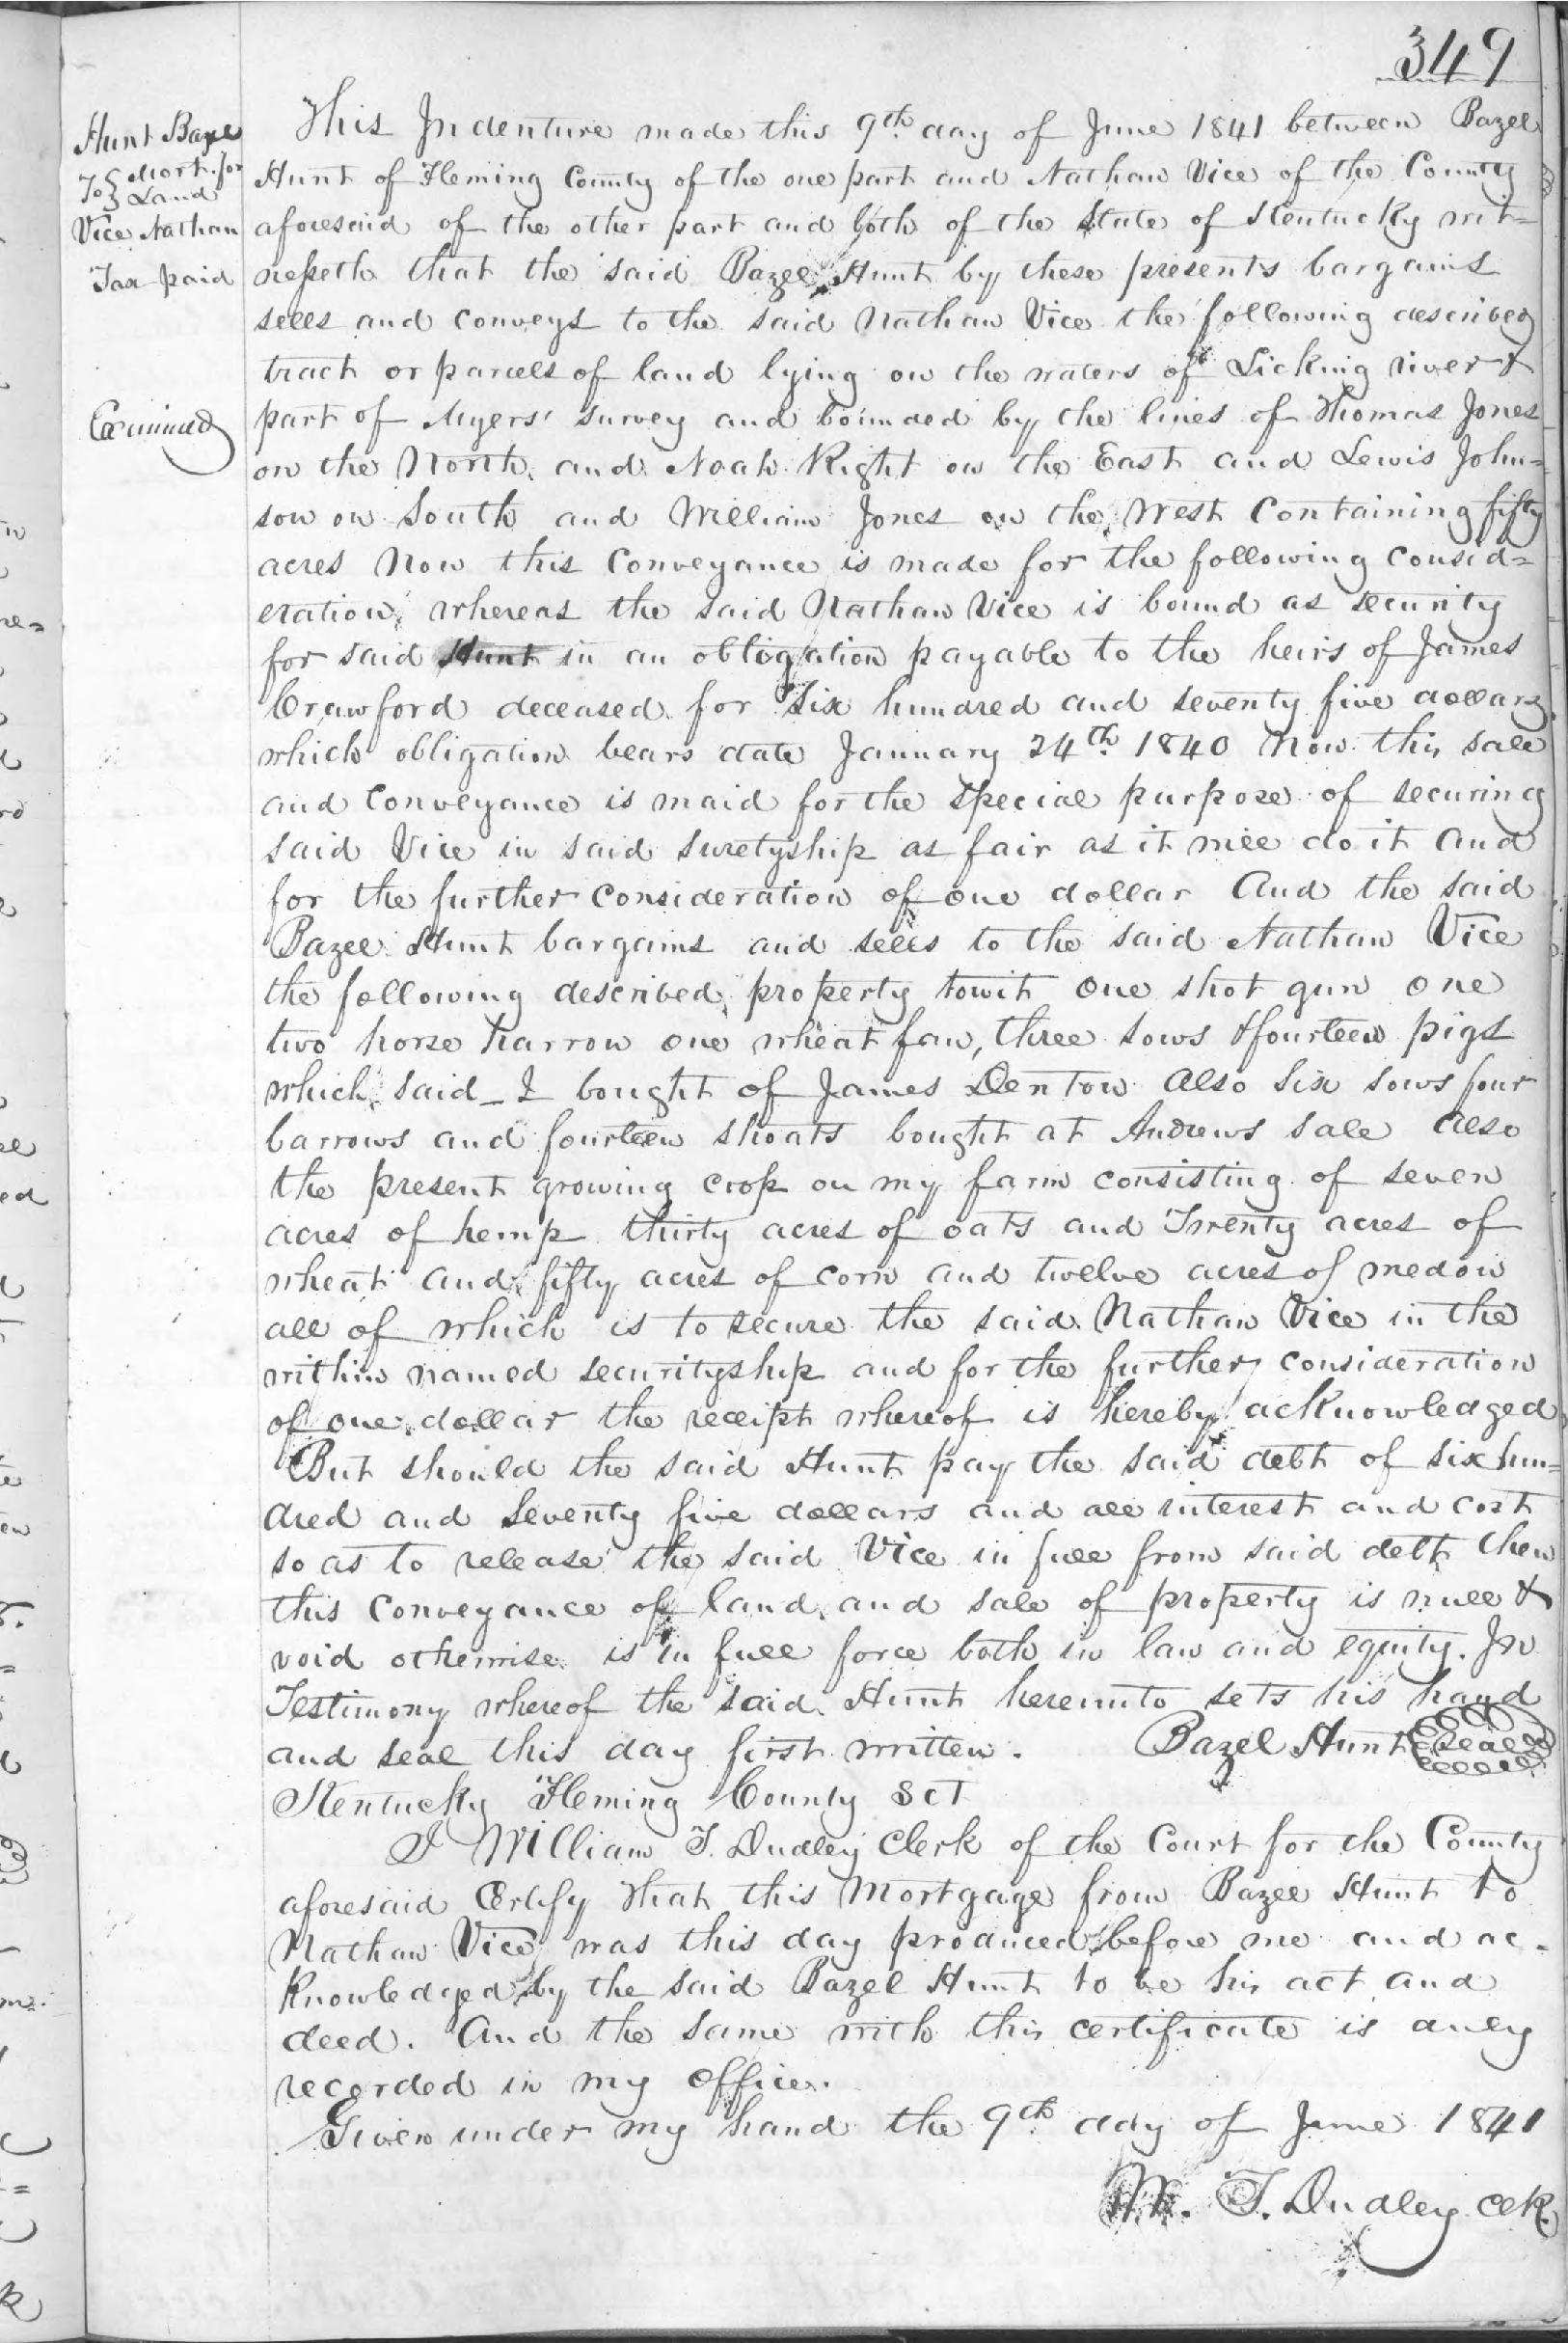 349
Hunt Bazel
To } Mort. for
Land
Vice Nathan
Tax paid
Examined
This Indenture made this 9th day of June 1841 between Bazel
Hunt of Fleming County of the one part and Nathan Vice of the County
aforesaid of the other part and both of the State of Kentucky wit=
nesseth that the said Bazel Hunt by these presents bargains
sells and conveys to the said Nathan Vice the following described
tract or parcels of land lying on the waters of Licking river &
part of Myers' survey and bounded by the lines of Thomas Jones
on the North and Noah Right on the East and Lewis John=
son on South and William Jones on the West Containing fifty
acres Now this Conveyance is made for the following consid=
eration whereas the said Nathan Vice is bound as security
for said Hunt in an obligation payable to the heirs of James
Crawford deceased for Six hundred and seventy five dollars
which obligation bears date January 24th 1840 Now this sale
and Conveyance is maid for the special purpose of securing
said Vice in said suretyship as fair as it will do it And
for the further Consideration of one dollar And the said
Bazel Hunt bargains and sells to the said Nathan Vice
the following described property towit One shot gun one
two horse harrow one wheat fan, three sows & fourteen pigs
which said I bought of James Denton Also Six sows four
barrows and fourteen shoats bought at Andrews sale also
the present growing crop on my farm consisting of seven
acres of hemp thirty acres of oats and Twenty acres of
wheat and fifty acres of corn and twelve acres of medow
all of which is to secure the said Nathan Vice in the
within named securityship and for the further consideration
of one dollar the receipt whereof is hereby acknowledged
But should the said Hunt pay the said debt of six hun=
dred and Seventy five dollars and all interest and cost
so as to release the said Vice in full from said debt then
this Conveyance of land and sale of property is null &
void otherwise is in full force both in law and equity. In
Testimony whereof the said Hunt hereunto sets his hand
and seal this day first written. Bazel Hunt Seal
Kentucky Fleming County Sct
I William T. Dudley Clerk of the Court for the County
aforesaid Certify that this Mortgage from Bazel Hunt to
Nathan Vice was this day produced before me and ac-
knowledged by the said Bazel Hunt to be his act and
deed. And the same with this certificate is duly
recorded in my office.
Given under my hand the 9th day of June 1841
W. T. Dudley Clk.